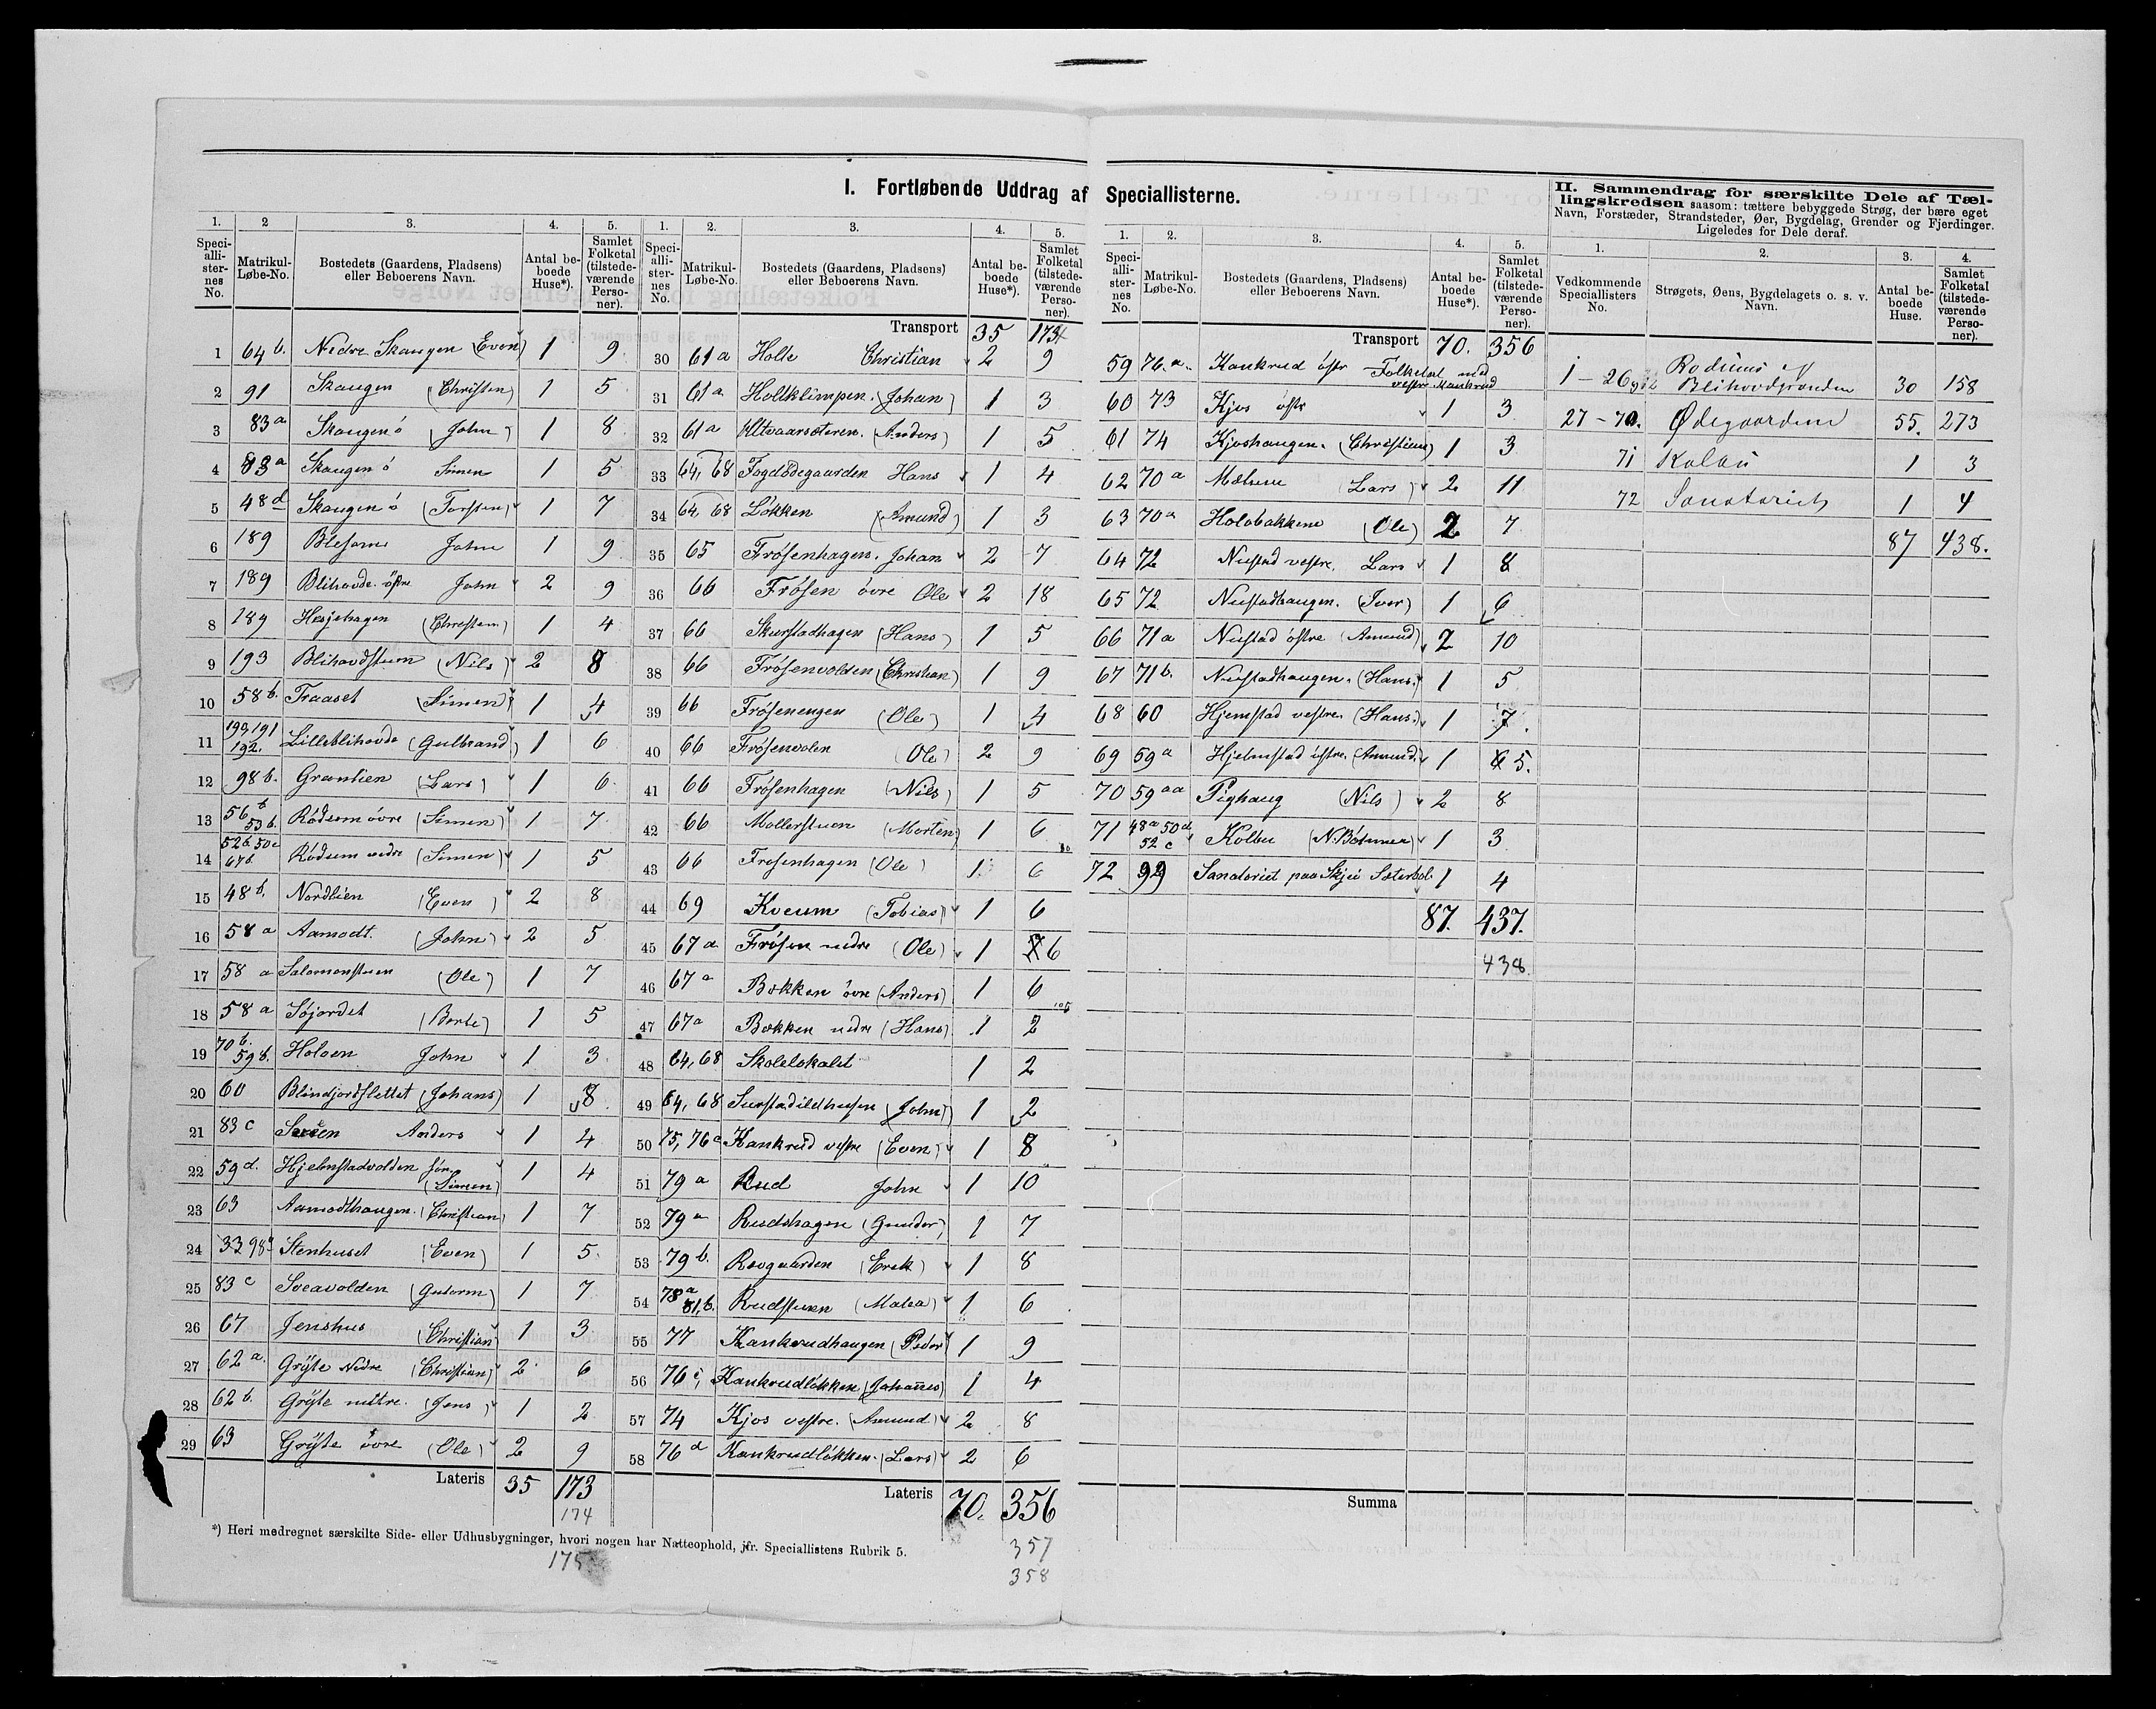 I. Fortløbende Uddrag af Speciallisterne.
1. 2 3. 4. 5.
Speciallisternes No. Matrikul-Løbe-No. Bostedets (Gaardens, Pladsens) eller Beboerens Navn. Antal beboede Huse*). Samlet Folketal (tilstedeværende Personer).
1 64 b. Nedre Skaugen (Even) 1 9
2 91 Skaugen (Christen) 1 5
3 83 a Skaugen ö (John) 1 8
4 83 a Skaugen ö Simen 1 5
5 48 d Skaugen ö (Torsten) 1 7
6 189 John 1 9
7 189 Blihovde östre John 2 9
8 189 Hesjehagen (Christian) 1 4
9 193 Blihovdstuen (Nils) 2 8
10 58 b. Traaset (Simen) 1 4
11 190, 191 192. Lilleblihovde (Gulbrand) 1 6
12 98 b. Granlien (Lars) 1 6
13 56 b 53 b. Rödsem övre (Simen) 1 7
14 52 b. 50 c 67 b. Rödsum nedre (Simen) 1 5
15 48 b. Nordlien (Even) 2 8
16 58 a Aamodt. (John) 2 5
17 58 a Salomonstuen (Ole) 1 7
18 58 a Söjordet (Berte) 1 5
19 70 b. 59 b. Holoen John 1 3
20 60 Blindjordslettet (Johans) 1 8
21 83 c Anders 1 4
22 59 d. Hjelmstadvolden (Simen) 1 4
23 63 Aamodthaugen. (Christian) 1 7
24 33 98 Stenhuset (Even) 1 5
25 83 c Sveavolden (Gutorm) 1 7
26 67 Jenshus (Christian) 1 3
27 62 a. Gryte Nedre (Christian) 2 6
28 62 b. Gryte mittre. (Jens) 1 2
29 63 Gryte övre (Ole) 2 9
Lateris 35 173
174
175
*) Heri medregnet særskilte Side- eller Udhusbygninger, hvori nogen har Natteophold, jfr. Speciallistens Rubrik 5.
1. 2. 3. 4. 5.
Speciallisternes No. Matrikul-Løbe-No. Bostedets (Gaardens, Pladsens) eller Beboerens Navn. Antal beboede Huse*). Samlet Folketal (tilstedeværende Personer).
Transport 35 173
30 61 a Holte Christian 2 9
31 61 a Holtklimpen. (Johan) 1 3
32 61 a (Anders) 1 5
33 64, 68 Fogdödegaarden Hans 1 4
34 64, 68 Lökken (Amund) 1 3
35 65 Frösenhagen. Johan 2 7
36 66 Frösen övre Ole 2 18
37 66 Skurstadhagen (Hans) 1 5
38 66 Frösenvolden (Christian) 1 9
39 66 Frösenengen (Ole) 1 4
40 66 Frösenvolen (Ole) 2 9
41 66 Frösenhagen (Nils) 1 5
42 66 Mollerstuen (Morten) 1 6
43 66 Frosenhagen (Ole) 1 6
44 69 Kveum (Tobias) 1 6
45 67 a Frösen nedre (Ole) 1 7 6
46 67 a Bækken övre (Anders) 1 6
47 67 a Bækken nedre (Hans) 1 2
48 64, 68 Skolelokalet 1 2
49 64, 68 (John) 1 2
50 75, 76 c Kankrud vestre (Even) 1 8
51 79 a Rud John 1 10
52 79 a Rudshagen (Gundor) 1 7
53 79 b. (Erik) 1 8
54 78 a 81, b. Rudstuen (Malea) 1 6
55 77 Kankrudhaugen (Peder) 1 9
56 76 c, Kankrudlökken (Johannes) 1 4
57 74 Kjos vestre. (Amund) 2 8
58 76 d Kankrudlökken. (Lars) 2 6
Lateris 70. 356
357
358
1. 2. 3. 4. 5.
Speciallisternes No. Matrikul-Løbe-No. Bostedets (Gaardens, Pladsens) eller Beboerens Navn. Antal beboede Huse*). Samlet Folketal (tilstedeværende Personer).
Transport 70. 356
59 76. a. Kankrud östr Folketal med vestre Kankrud
60 73 Kjos östr 1 3
61 74 Kjoshaugen. (Christian) 1 3
62 70 a Mælum (Lars) 2 11
63 70 a Holobakkene (Ole) 2 7
64 72 Nustad vestre. Lars 1 8
65 72 Nustadhaugen. (Iver) 1 6
66 71 a Nustad östre (Amund) 2 10
67 71 b. Nustadhaugen. (Hans) 1 5
68 60 Hjemstad vestre. (Hans.) 1 7.
69 59 a Hjelmstad östre. (Amund.) 1 5.
70 59 aa Pighaug (Nils) 2 8
71 48 a 50 d 52 c Kolbu 1 3
72 92 Sanatoriet paa Skjei 1 4
87. 437.
438.
Summa
II. Sammendrag for særskilte Dele af Tællingskredsen saasom: tættere bebyggede Strøg, der bære eget Navn, Forstæder, Strandsteder, Øer, Bygdelag, Grender og Fjerdinger. Ligeledes for Dele deraf.
1. 2. 3. 4.
Vedkommende Speciallisters No. Strøgets, Øens, Bygdelagets o. s. v. Navn. Antal beboede Huse. Samlet Folketal (tilstedeværende Personer).
1 - 26 Blihovdgrenden 30 158
27 - 70. Ödegaardene 55. 273
71 Kolbu 1 3
72 Sanatoriet 1 4
87 438.